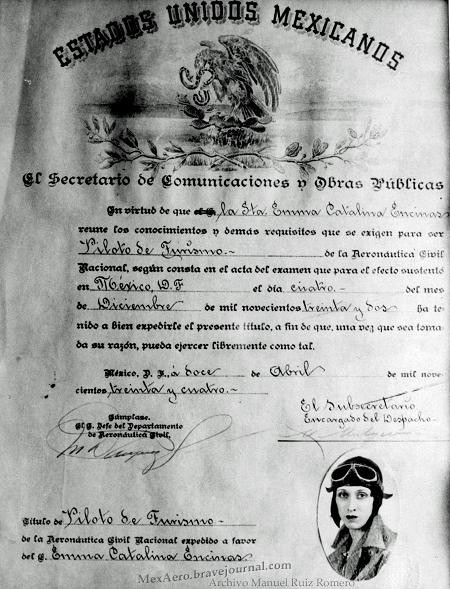 ESTADOS UNIDOS MEXICANOS
El Secretario de Comunicaciones y Obras Públicas
En virtud de que el C. la Sta. Emma Catalina Encinas
reune los conocimientos y demás requisitos que se exigen para ser
Piloto de Turismo.- de la Aeronáutica Civil
Nacional, según consta en el acta del examen que para el efecto sustentó
en México, D.F el día cuatro.- del mes
de Diciembre de mil novecientos treinta y dos ha te-
nido a bien expedirle el presente título, a fin de que, una vez que sea toma-
da su razón, pueda ejercer libremente como tal.
México, D. F., a doce de Abril de mil nove-
cientos treinta y cuatro.-
El Subsecretario
Encargado del Despacho.-
Cúmplase.
El C. Jefe del Departamento
de Aeronáutica Civil,
Título de Piloto de Turismo.-
de la Aeronáutica Civil Nacional expedido a favor
del C. Emma Catalina Encinas
MexAero.bravejournal.com
Archivo Manuel Ruiz Romero